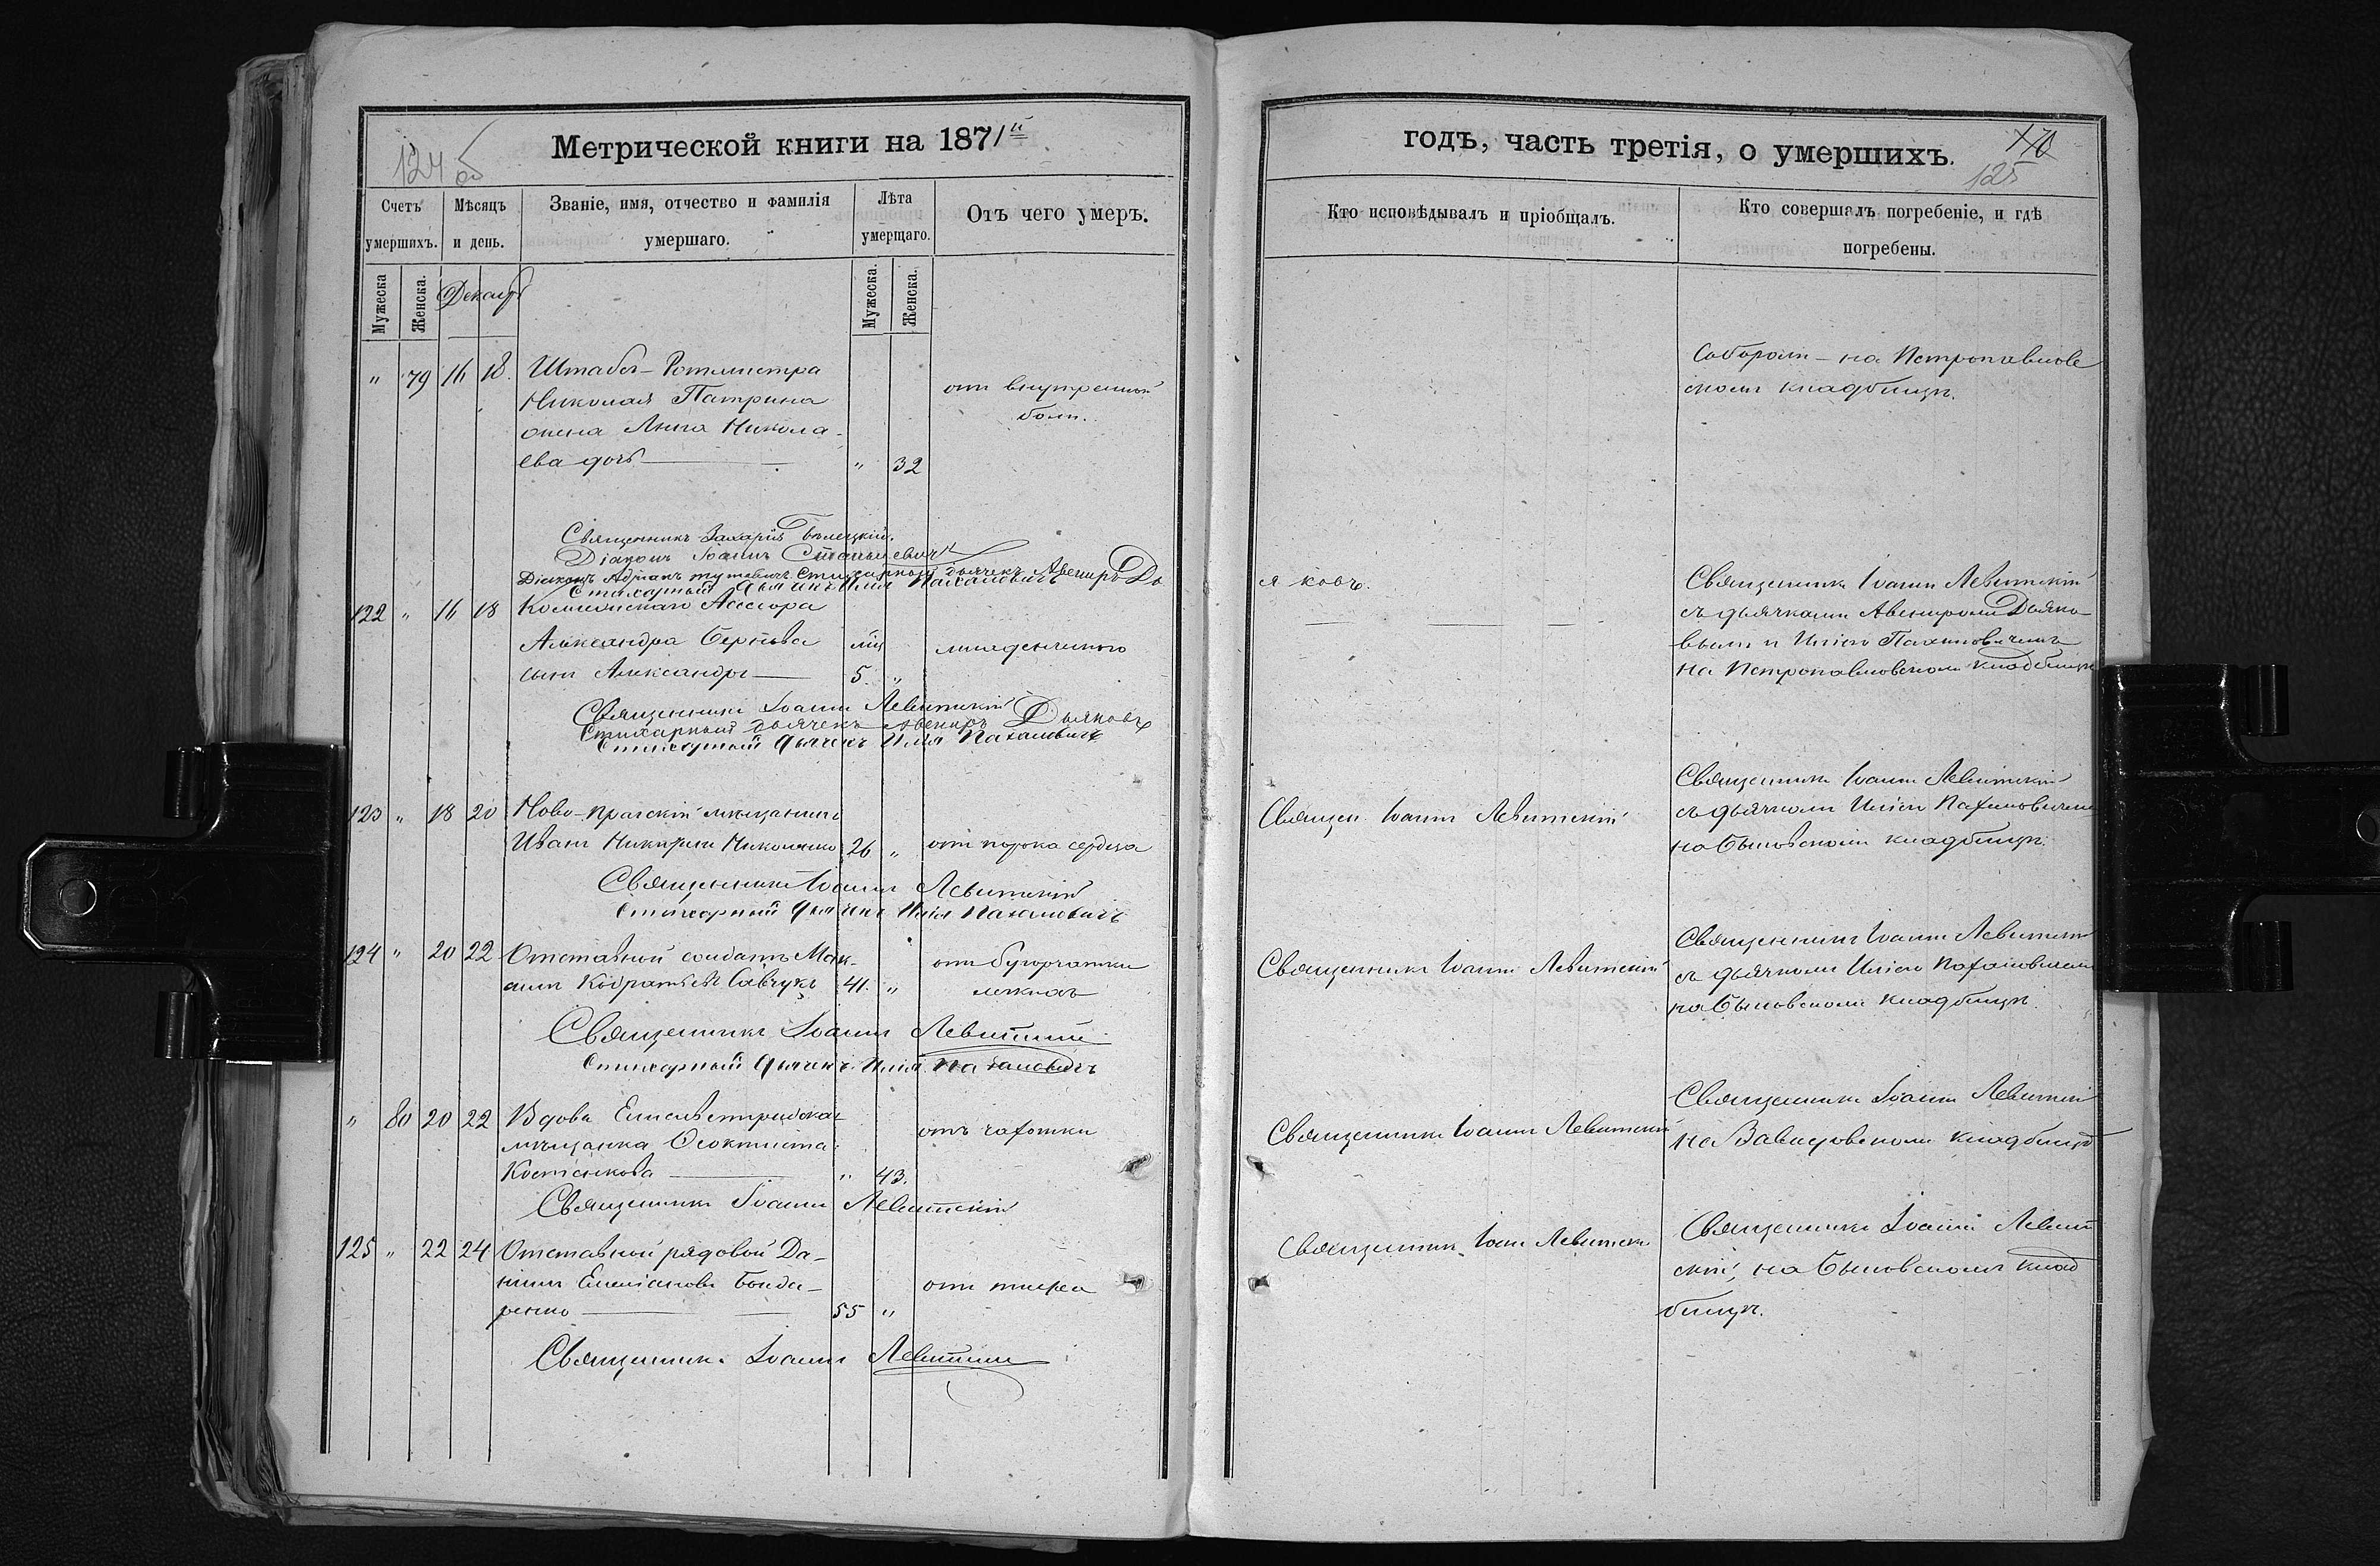 Метрической книги на 1871й
124 об
Счетъ умершихъ.
Мѣсяцъ и день.
Званіе, имя, отчество и фамилія умершаго.
Лѣта умершаго.
Отъ чего умеръ.
Мужеска
Женска.
Декабрь
Мужеска.
Женска.
" 79 16 18. Штабсъ-Ротмистра
Николая Патрина
жена Анна Никола-
ева дочь " 32
отъ внутренней
боли.
Священникъ Захарій Бѣлецкій.
Діаконъ Іоаннъ
Діаконъ Адріанъ Стихарный дьячекъ Авениръ Дья
Стихарный дьячекъ Илія Пахаловичъ
122 " 16 18 Коллежскаго Ассесора
Александра
сынъ Александръ 5 "
младенческаго
Священникъ Іоаннъ Левитскій
Стихарный дьячекъ Авениръ Дьяковъ
Стихарный дьячекъ Илія Пахаловичъ
123 " 18 20 Ново-Прагскій мѣщанинъ
Иванъ 26 "
отъ порока сердца
Священникъ Іоаннъ Левитскій
Стихарный дьячекъ Илія Пахаловичъ
124 " 20 22 Отставной солдатъ Мак-
симъ Савчукъ 41. "
отъ бугорчатки
легкихъ
Священникъ Іоаннъ Левитскій
Стихарный дьячекъ Илія Пахаловичъ
" 80 20 22 Вдова Елисаветградская
мѣщанка Ѳеоктиста
Костенкова " 43.
отъ чахотки
Священникъ Іоаннъ Левитскій
125 " 22 24 Отставной рядовой Да-
ніилъ Емеліановъ Бонда-
ренко 55 "
отъ тифа
Священникъ Іоаннъ Левитскій
годъ, часть третія, о умершихъ.
125
Кто исповѣдывалъ и пріобщалъ.
Кто совершалъ погребеніе, и гдѣ
погребены.
Соборомъ - на Петропавлов
скомъ кладбищѣ.
я ковъ.
Священникъ Іоаннъ Левитскій
съ дьячками Авениромъ Дьяко-
вымъ и Иліею Пахаловичемъ
на Петропавловскомъ кладбищѣ
Священ. Іоаннъ Левитскій
Священникъ Іоаннъ Левитскій
съ дьячкомъ Иліею Пахаловичемъ
на Быковскомъ кладбищѣ.
Священникъ Іоаннъ Левитскій
Священникъ Іоаннъ Левитскій
съ дьячкомъ Иліею Пахаловичемъ
на Быковскомъ кладбищѣ.
Священникъ Іоаннъ Левитскій
Священникъ Іоаннъ Левитскій
на кладбищѣ
Священникъ Іоаннъ Левитскій
Священникъ Іоаннъ Левит
скій, на Быковскомъ клад
бищѣ.